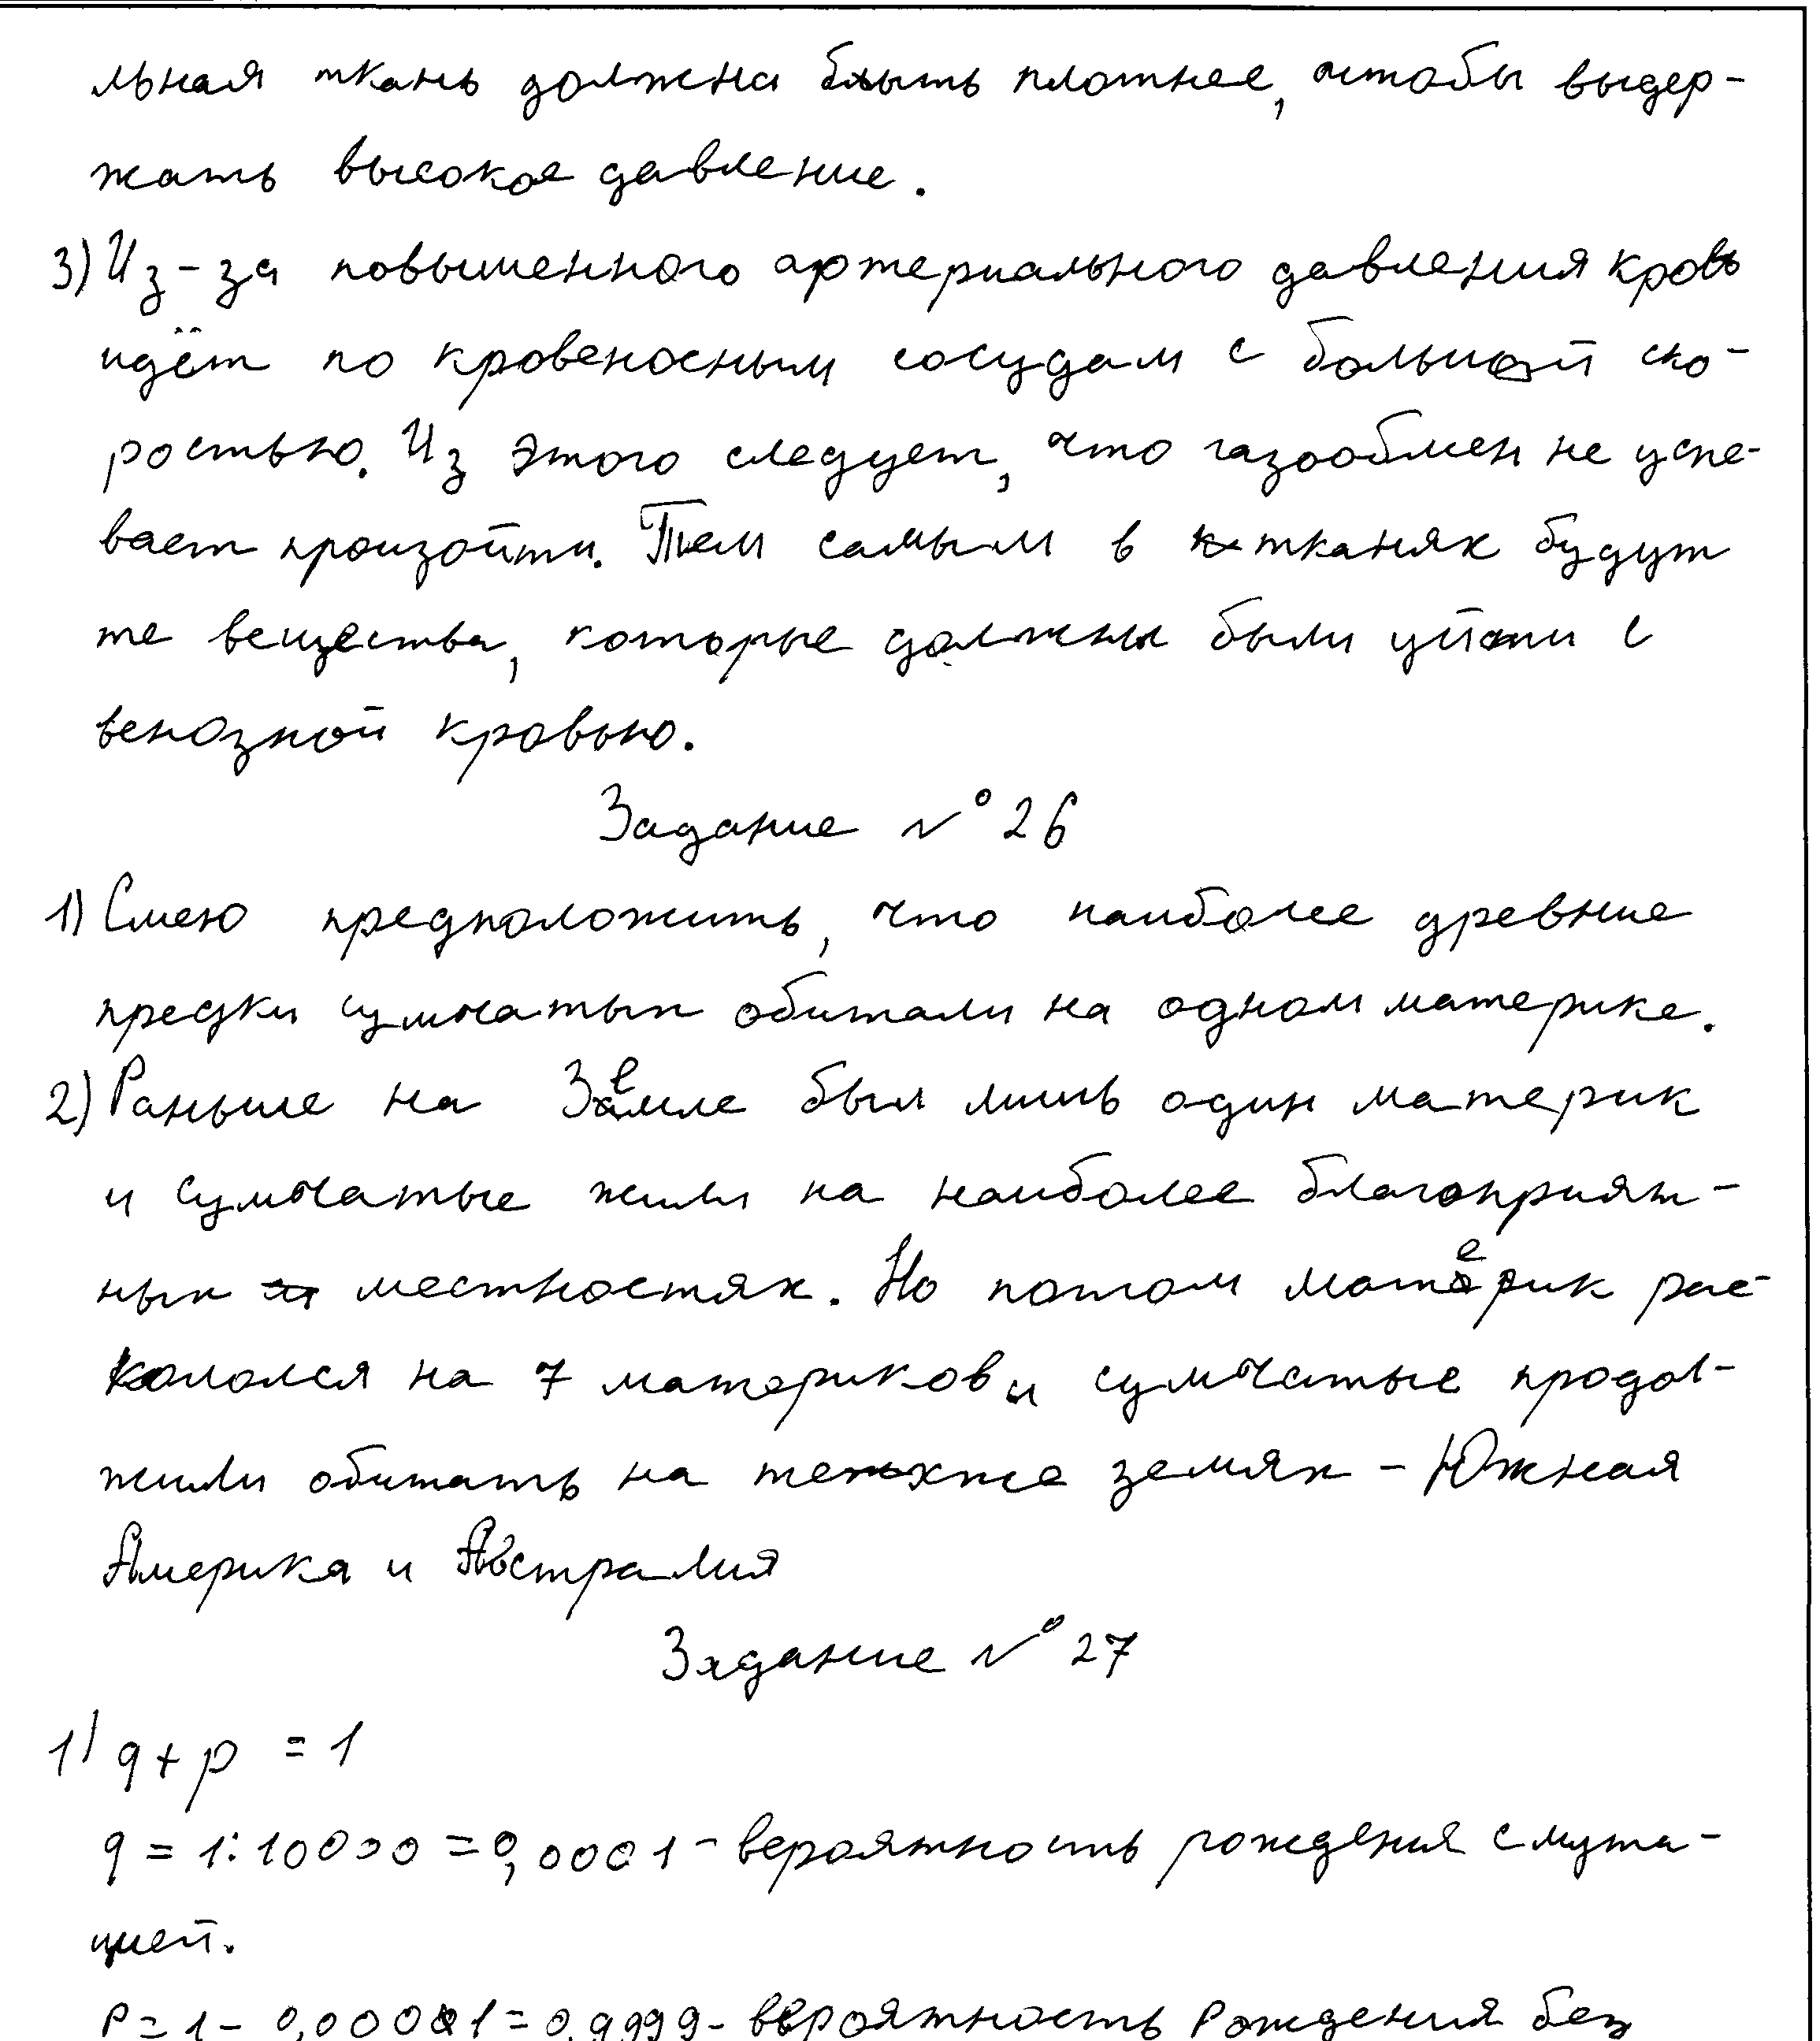 льная ткань должна быть плотнее, чтобы выдер-
жать высокое давление.
3) Из-за повышенного артериального давления кровь
идёт по кровеносным сосудам с большой ско-
ростью. Из этого следует, что газообмен не успе-
вает произойти. Тем самым в тканях будут
те вещества, которые должны были уйти с
венозной кровью.
Задание № 26
1) Смею предположить, что наиболее древние
предки сумчатых обитали на одном материке.
2) Раньше на Земле был лишь один материк
и сумчатые жили на наиболее благоприят-
ных местностях. Но потом материк рас-
кололся на 7 материков и сумчатые продол-
жили обитать на тех же землях - Южная
Америка и Австралия
Задание № 27
1) q + p = 1
q = 1:10000 = 0,0001 - вероятность рождения с мута-
цией.
p = 1 - 0,0001 = 0,9999 - вероятность рождения без